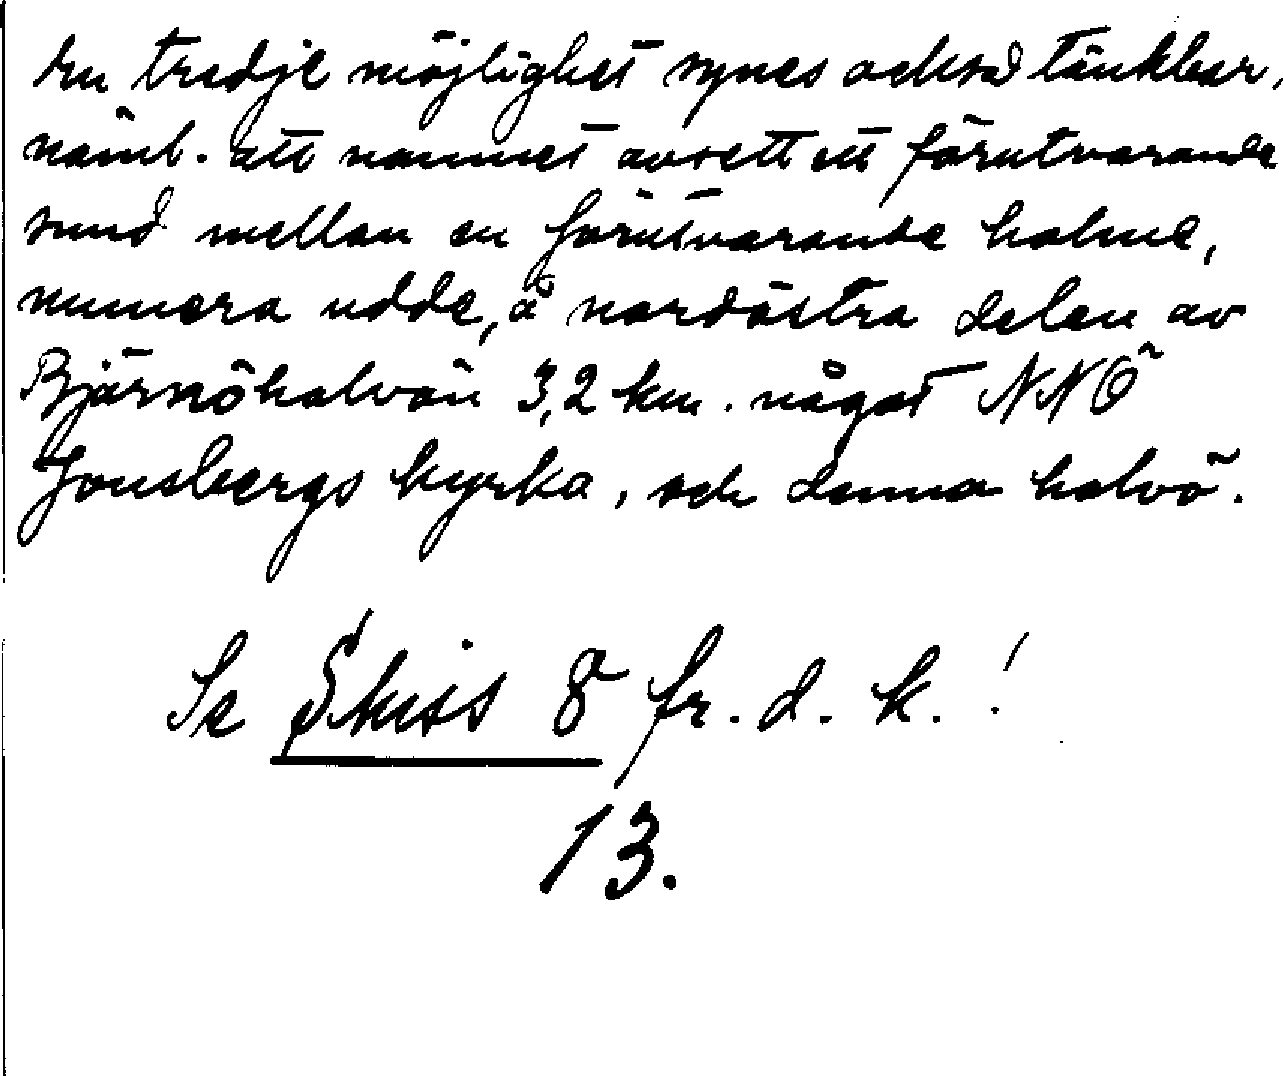 En tredje möjlighet synes också tänkbar,
näml. att namnet avsett ett förutvarande
sund mellan en förutvarande holme,
numera udde, å nordöstra delen av
Björnöhalvön 3,2 km. något NNÖ
Jonsbergs kyrka, och denna halvö.
Se Skiss 8 fr. d. k.!
13.